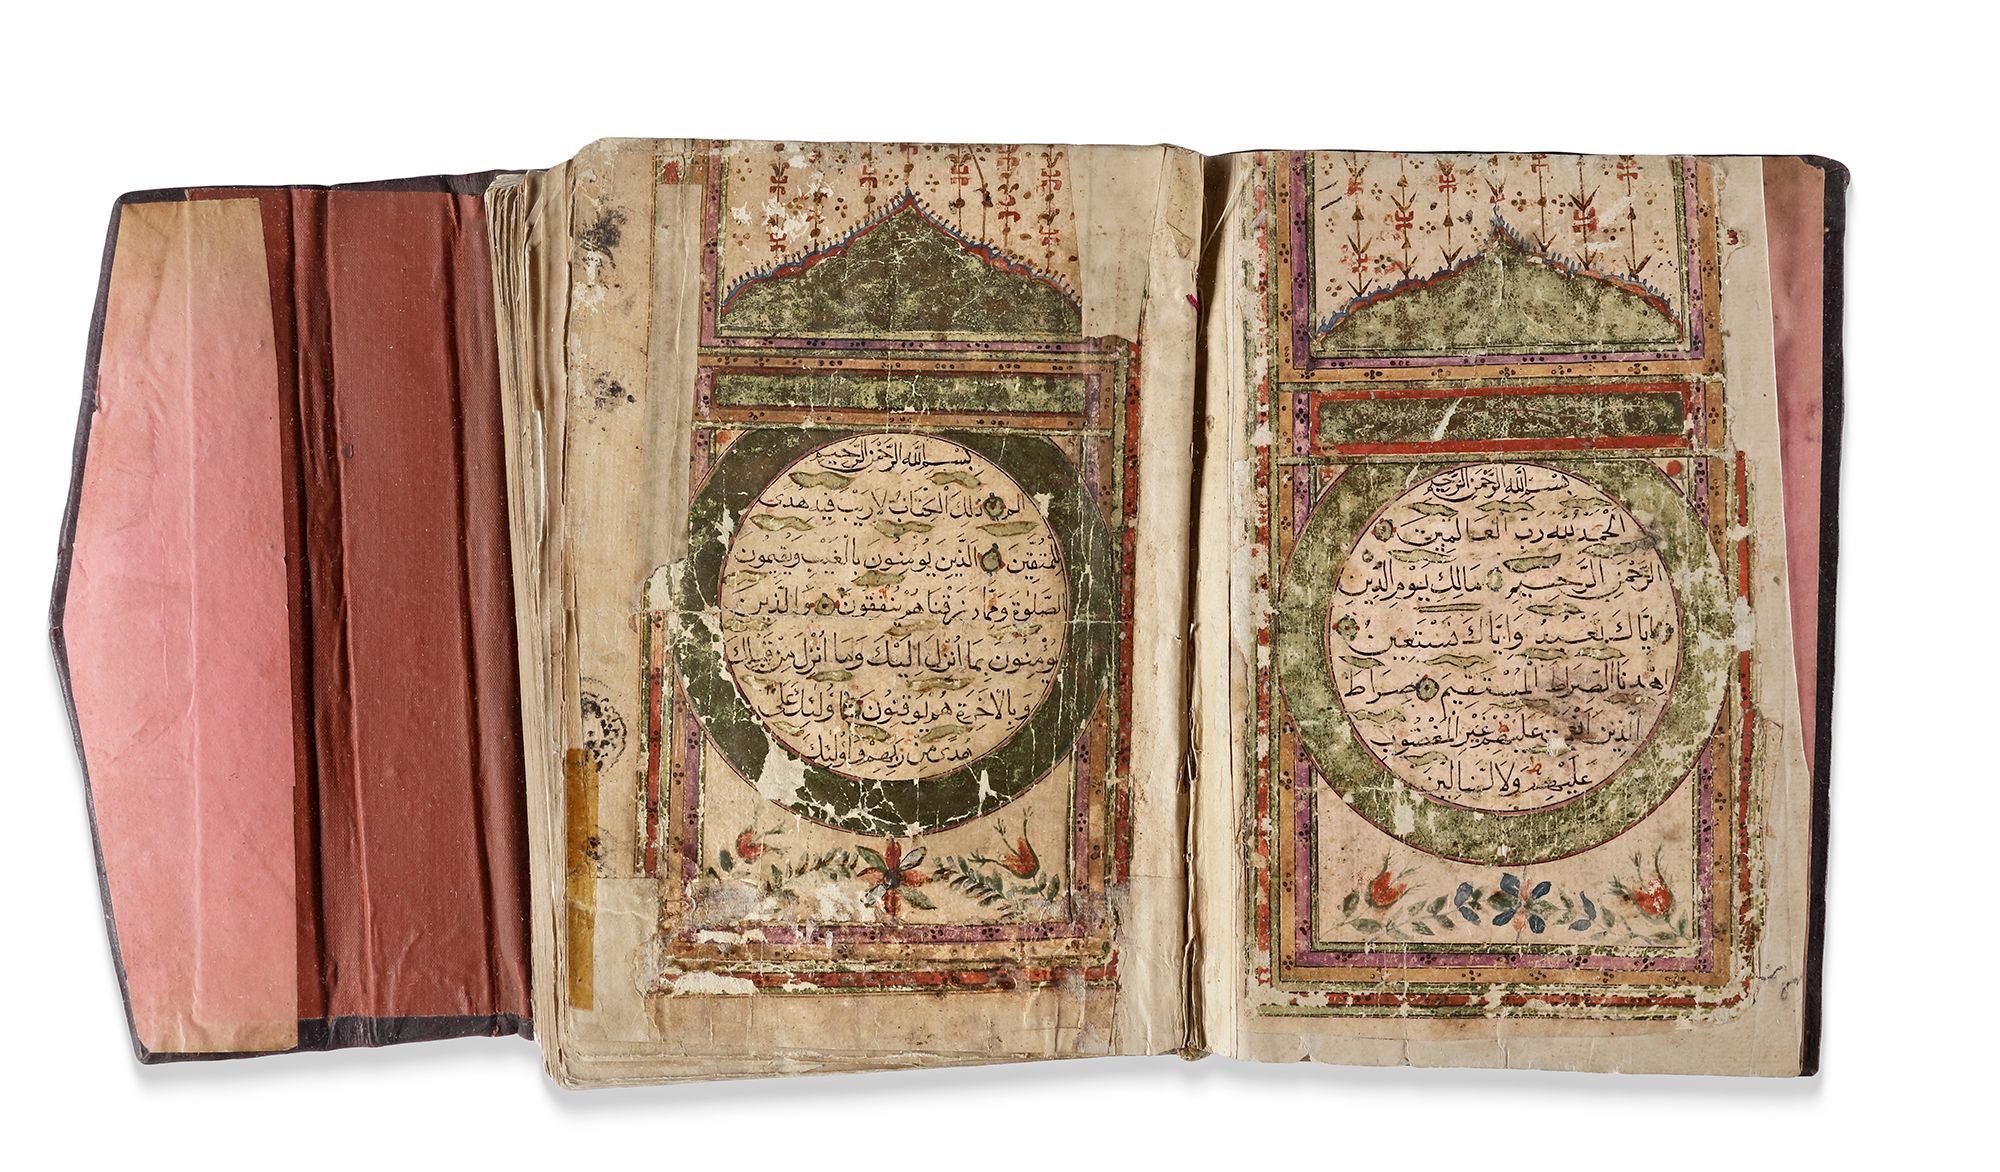 بسم الله الرحمن الرحيم
الحمد لله رب العالمين
الرحمن الرحيم مالك يوم الدين
اياك نعبد واياك نستعين
اهدنا الصراط المستقيم صراط
الذين انعمت عليهم غير المغضوب
عليهم ولا الضالين
بسم الله الرحمن الرحيم
الم ذلك الكتاب لا ريب فيه هدى
للمتقين الذين يومنون بالغيب ويقيمون
الصلوة ومما رزقناهم ينفقون والذين
يومنون بما أنزل اليك وما أنزل من قبلك
وبالاخرة هم يوقنون اولئك على
هدى من ربهم واولئك